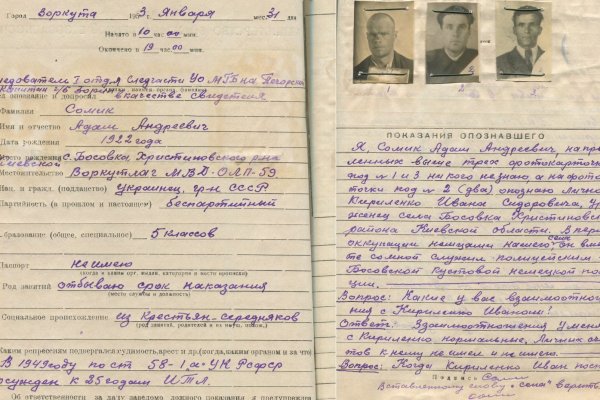 Город Воркута 1953 Января мес. 31 дня
Начато в 10 час 00 мин.
Окончено в 19 час. 00 мин.
ледователем I отд-я Следчасти Уо МГБ на Печорской
в качестве Свидетеля
Фамилия Сомик
Имя и отчество Адам Андреевич
Дата рождения 1922 года
рождения с. Босовка, Христиновского р-на
Киевской
Местожительство Воркутлаг МВД-ОЛП-59
Нац. и гражд. (подданство) украинец, гр-н СССР
Партийность (в прошлом и настоящем) беспартийный
бразование (общее, специальное) 5 классов
Паспорт не имею
(когда и каким орг. выдан, категория и место прописки)
Род занятий отбываю срок наказания
(место службы и должность)
Социальное происхождение из Крестьян-середняков
(род занятий, родителей и их имущ. полож.)
Каким репрессиям подвергался: судимость, арест и др. (когда, каким органом и за что)
В 1949 году по ст 58-1"а" УК РСФСР
осужден к 25 годам ИТЛ.
Об ответственности за дачу заведомо ложного показания я предупрежден
1 2 3
ПОКАЗАНИЯ ОПОЗНАВШЕГО
Я, Сомик Адам Андреевич, на пре
ленных выше трех фотокарточк
под № 1 и 3 никого не знаю, а на фото
точки под № 2 (два) опознаю лично
Кириленко Ивана Сидоровича, ур
женец села Босовка Христиновс
района Киевской области. В пери
оккупации немцами нашего села он вмес
те со мной служил полицейским
Босовской кустовой немецкой по
ции.
Вопрос: Какие у вас взаимоотно
ния с Кириленко Иваном?
Ответ: Взаимоотношения у меня
с Кириленко нормальные, личных сч
тов к нему не имел и не имею.
Вопрос: Когда Кириленко Иван пос
Подпись Сомик
Вставленному слову "села" верить